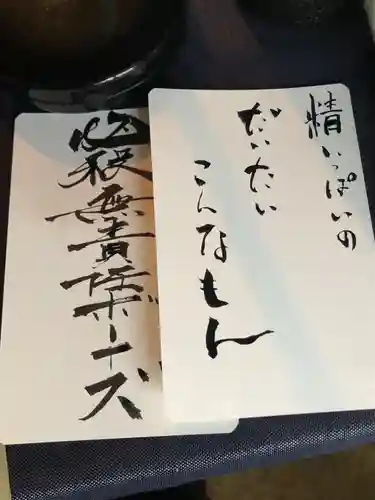 情いっぱいの
だいたい
こんなもん
必殺無責任ボーズ